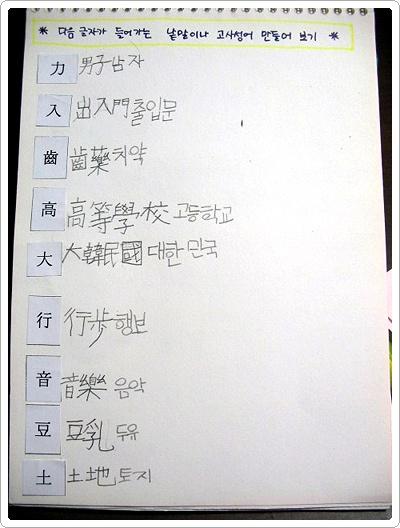 * 다음 글자가 들어가는 낱말이나 고사성어 만들어 보기 *
力 男子남자
入 出入門출입문
齒 齒藥치약
高 高等學校고등학교
大 大韓民國대한민국
行 行步행보
音 音樂음악
豆 豆乳두유
土 土地토지